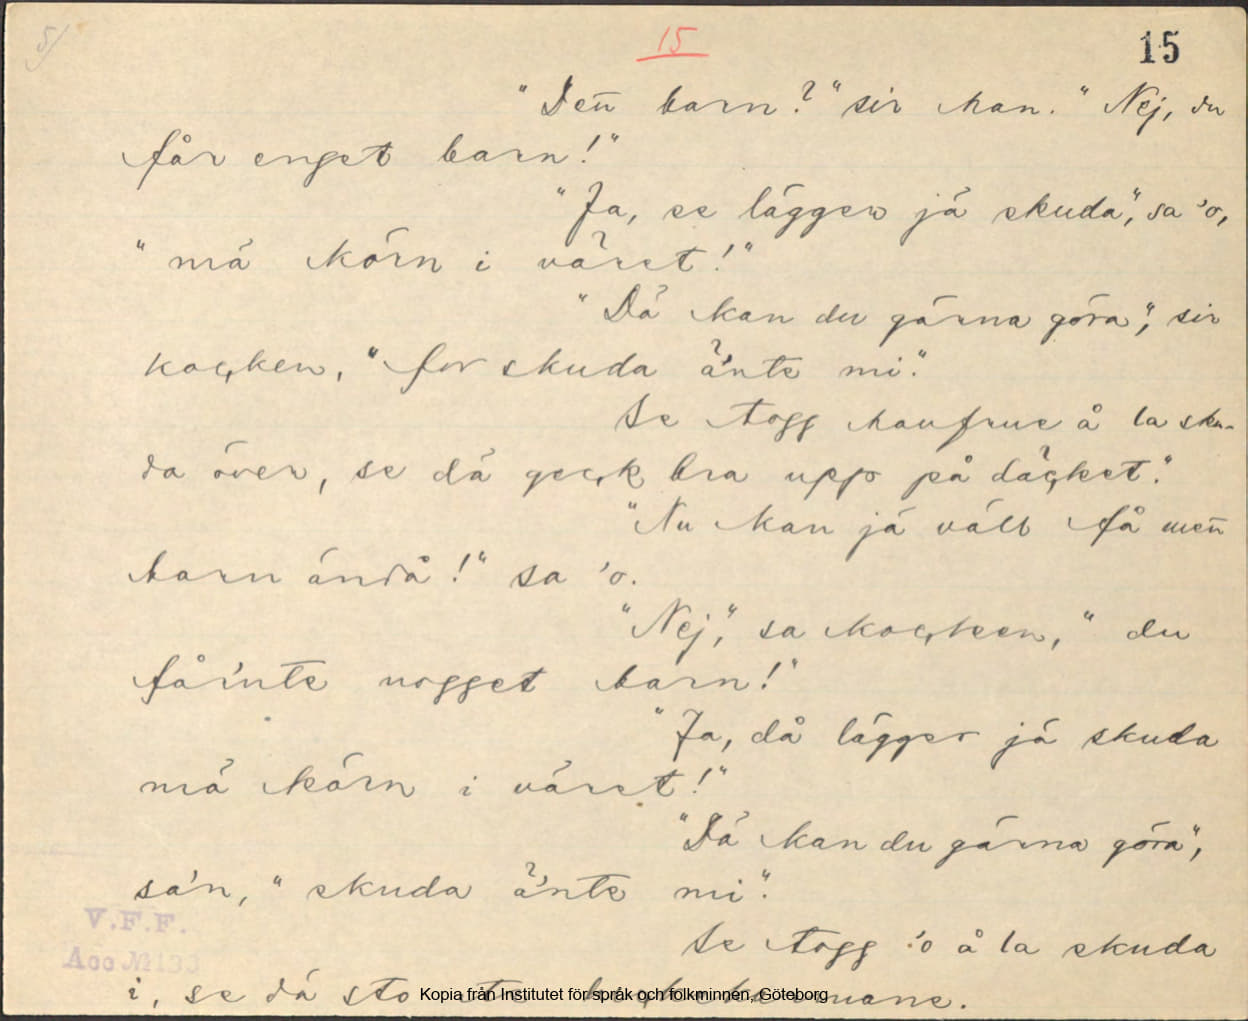 5/
15
15
"Den̄ barn?" sir han. "Nej, du
får enget barn!"
"Ja, se lägger jä skuda", sa 'o,
"mä körn i väret!"
"Dä kan du gärna göra", sir
kocken, "for skuda ä'nte mi".
Se togg haufrue å la sku-
da över, se dä geck bra upp på däcket".
"Nu kan jä väll få men̄
barn ändå!" sa 'o.
"Nej", sa kocken, "du
få'nte nogget barn!"
"Ja, då lägger jä skuda
mä körn i väret!"
"Dä kan du gärna göra",
sa'n, "skuda ä'nte mi".
Se togg 'o å la skuda
i, se dä sto
V.F.F.
Acc № 133
Kopia från Institutet för språk och folkminnen, Göteborg